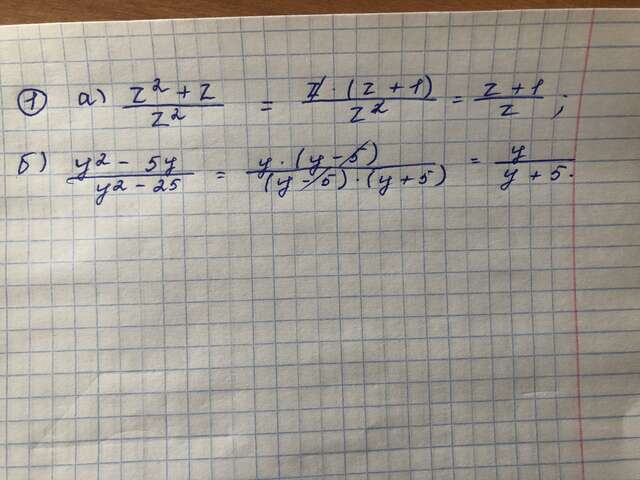 ① а) (z² + z)/z² = (z · (z + 1))/z² = (z + 1)/z ;
б) (y² - 5y)/(y² - 25) = (y · (y - 5))/((y - 5) · (y + 5)) = y/(y + 5).